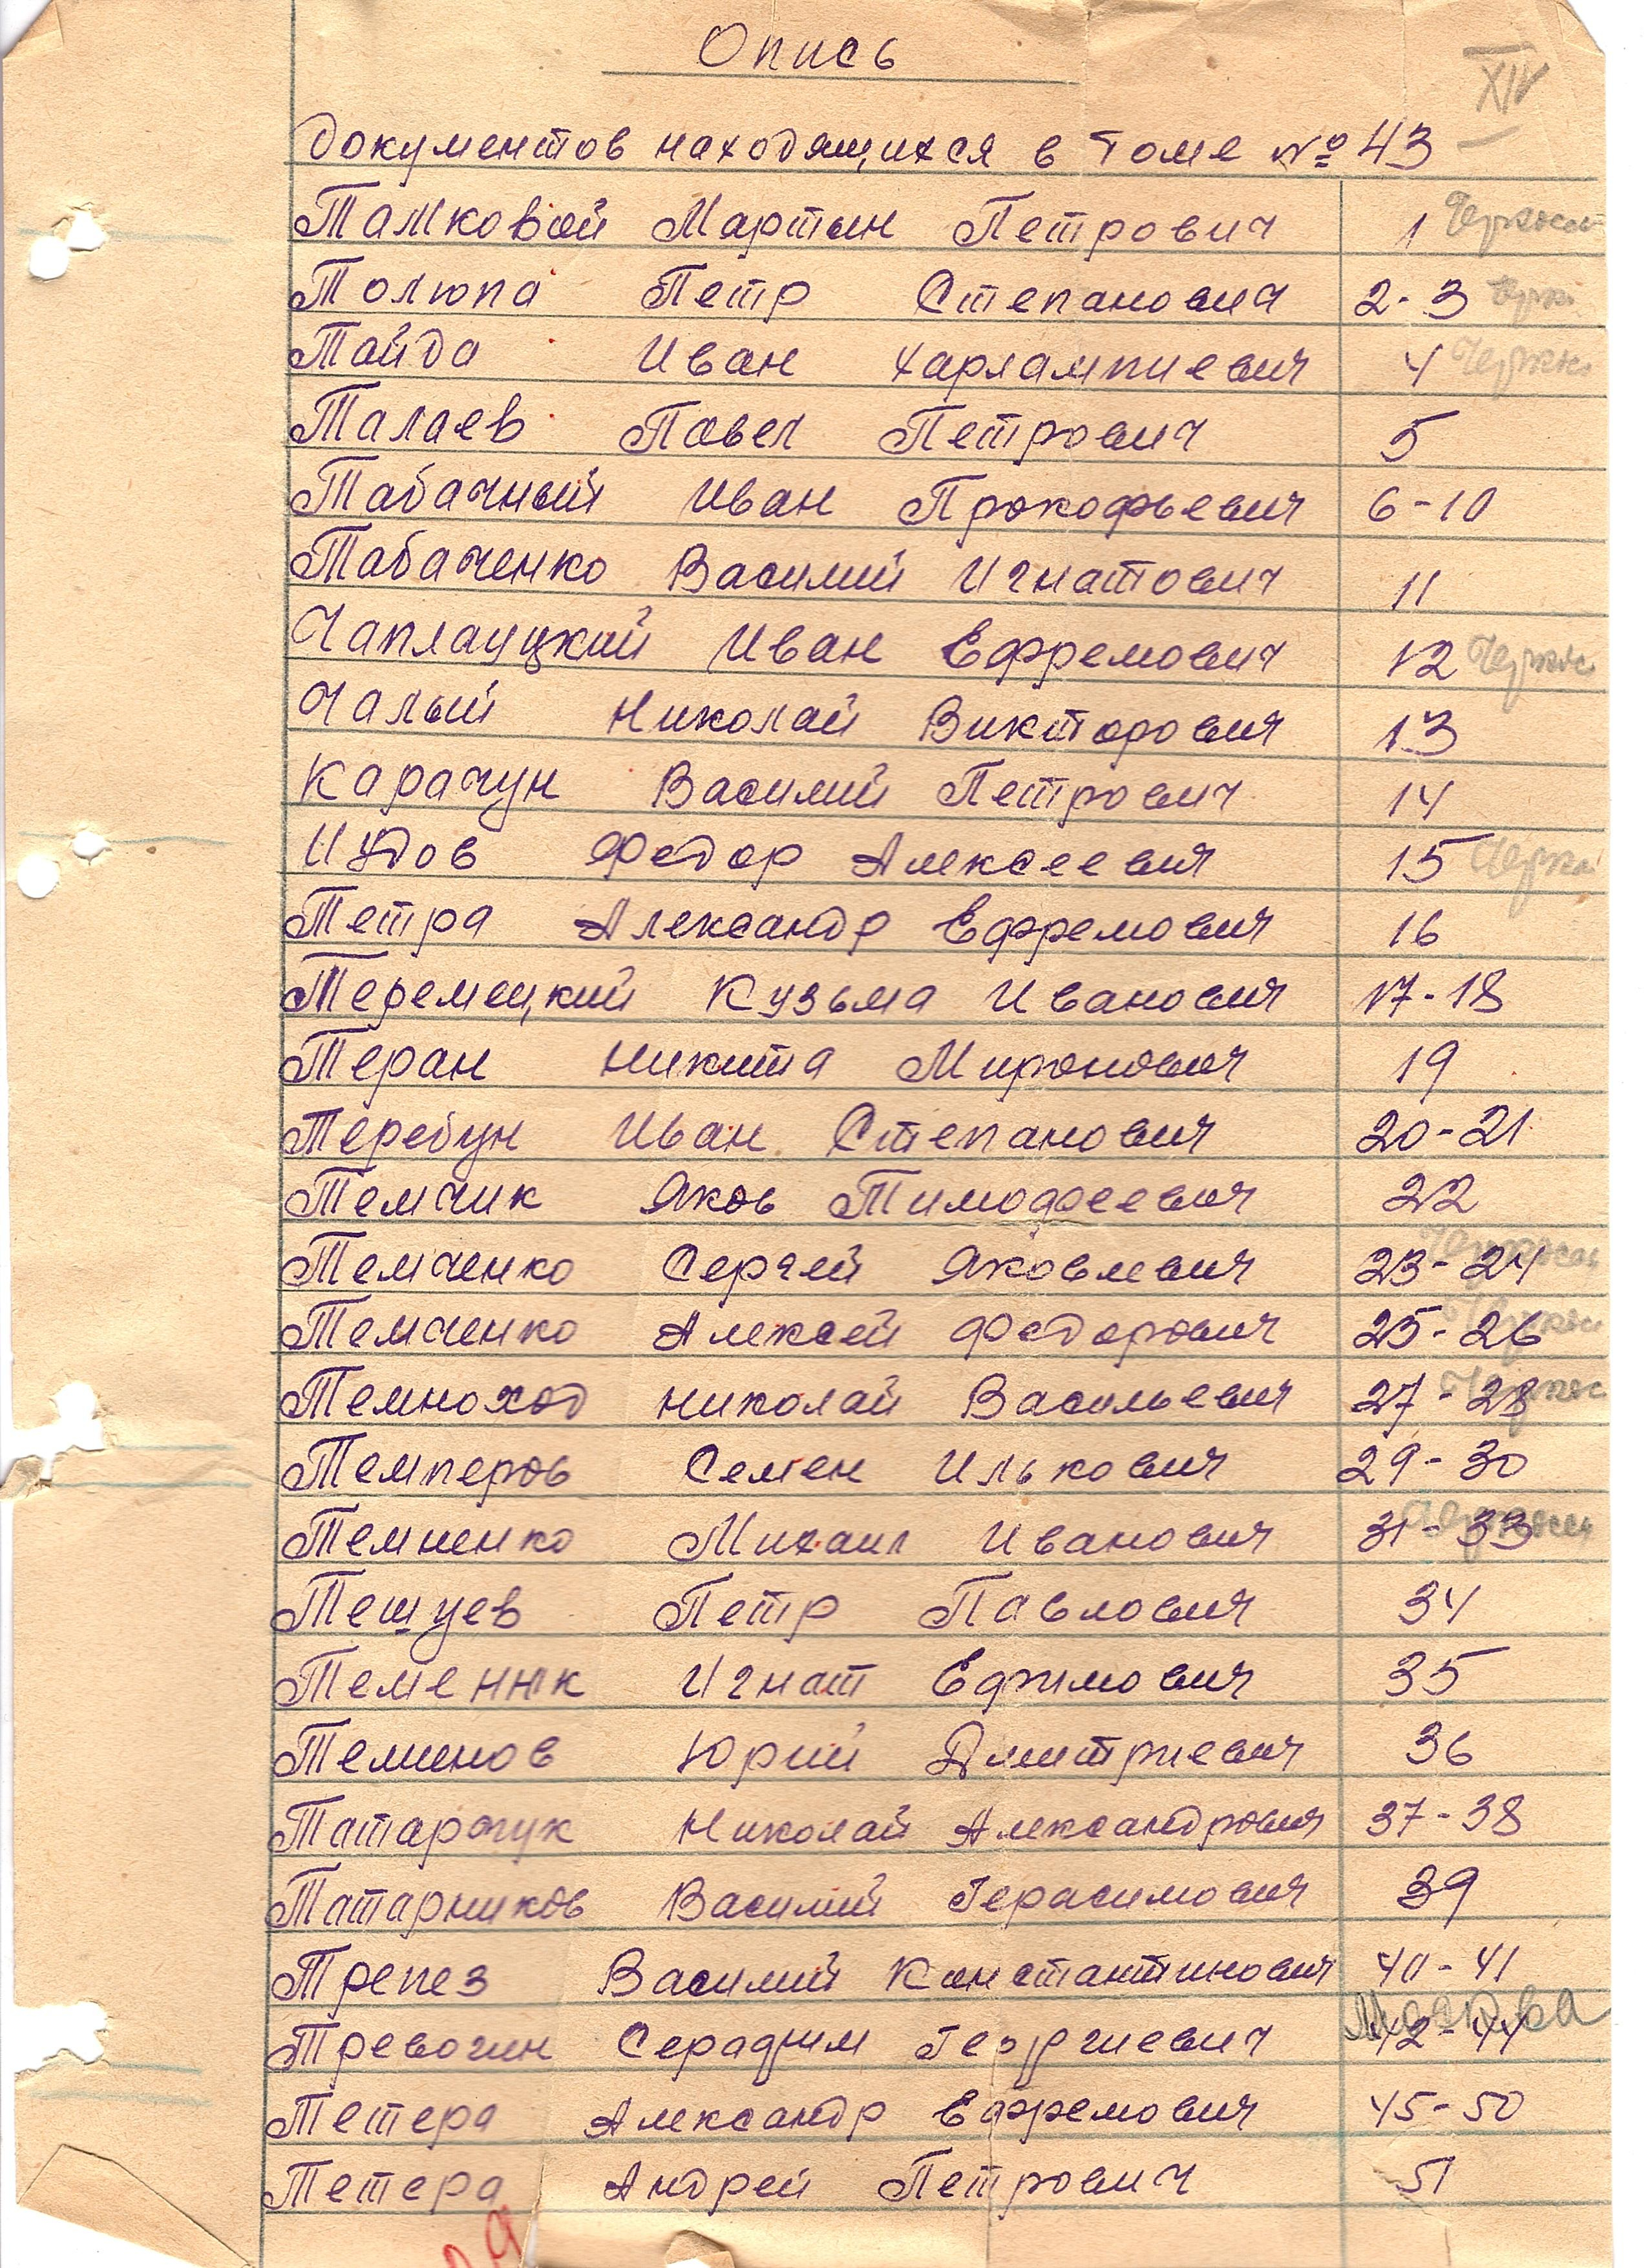 Опись
XIV
документов находящихся в томе № 43
Тамковой Мартын Петрович 1 Черкасс
Толюпа Петр Степанович 2-3 Черк.
Тайда Иван Харлампиевич 4 Черкас
Талаев Павел Петрович 5
Табачный Иван Прокофьевич 6-10
Табаченко Василий Игнатович 11
Чаплауцкий Иван Ефремович 12 Черкас
Чалый Николай Викторович 13
Карачун Василий Петрович 14
Иудов Федор Алексеевич 15 Черкас
Тетра Александр Ефремович 16
Теремецкий Кузьма Иванович 17-18
Теран Никита Миронович 19
Теребун Иван Степанович 20-21
Темчик Яков Тимофеевич 22
Темченко Сергей Яковлевич 23-24 Черкассы
Темченко Алексей Федорович 25-26 Черкас
Темноход Николай Васильевич 27-28 Черкас
Темперов Семен Илькович 29-30
Темненко Михаил Иванович 31-33 Черкассы
Тешуев Петр Павлович 34
Теменник Игнат Ефимович 35
Теминов Юрий Дмитриевич 36
Татарчук Николай Александрович 37-38
Татарников Василий Герасимович 39
Трепез Василий Константинович 40-41
Тревогин Серафим Георгиевич 42-44 Москва
Тетера Александр Ефремович 45-50
Тетера Андрей Петрович 51